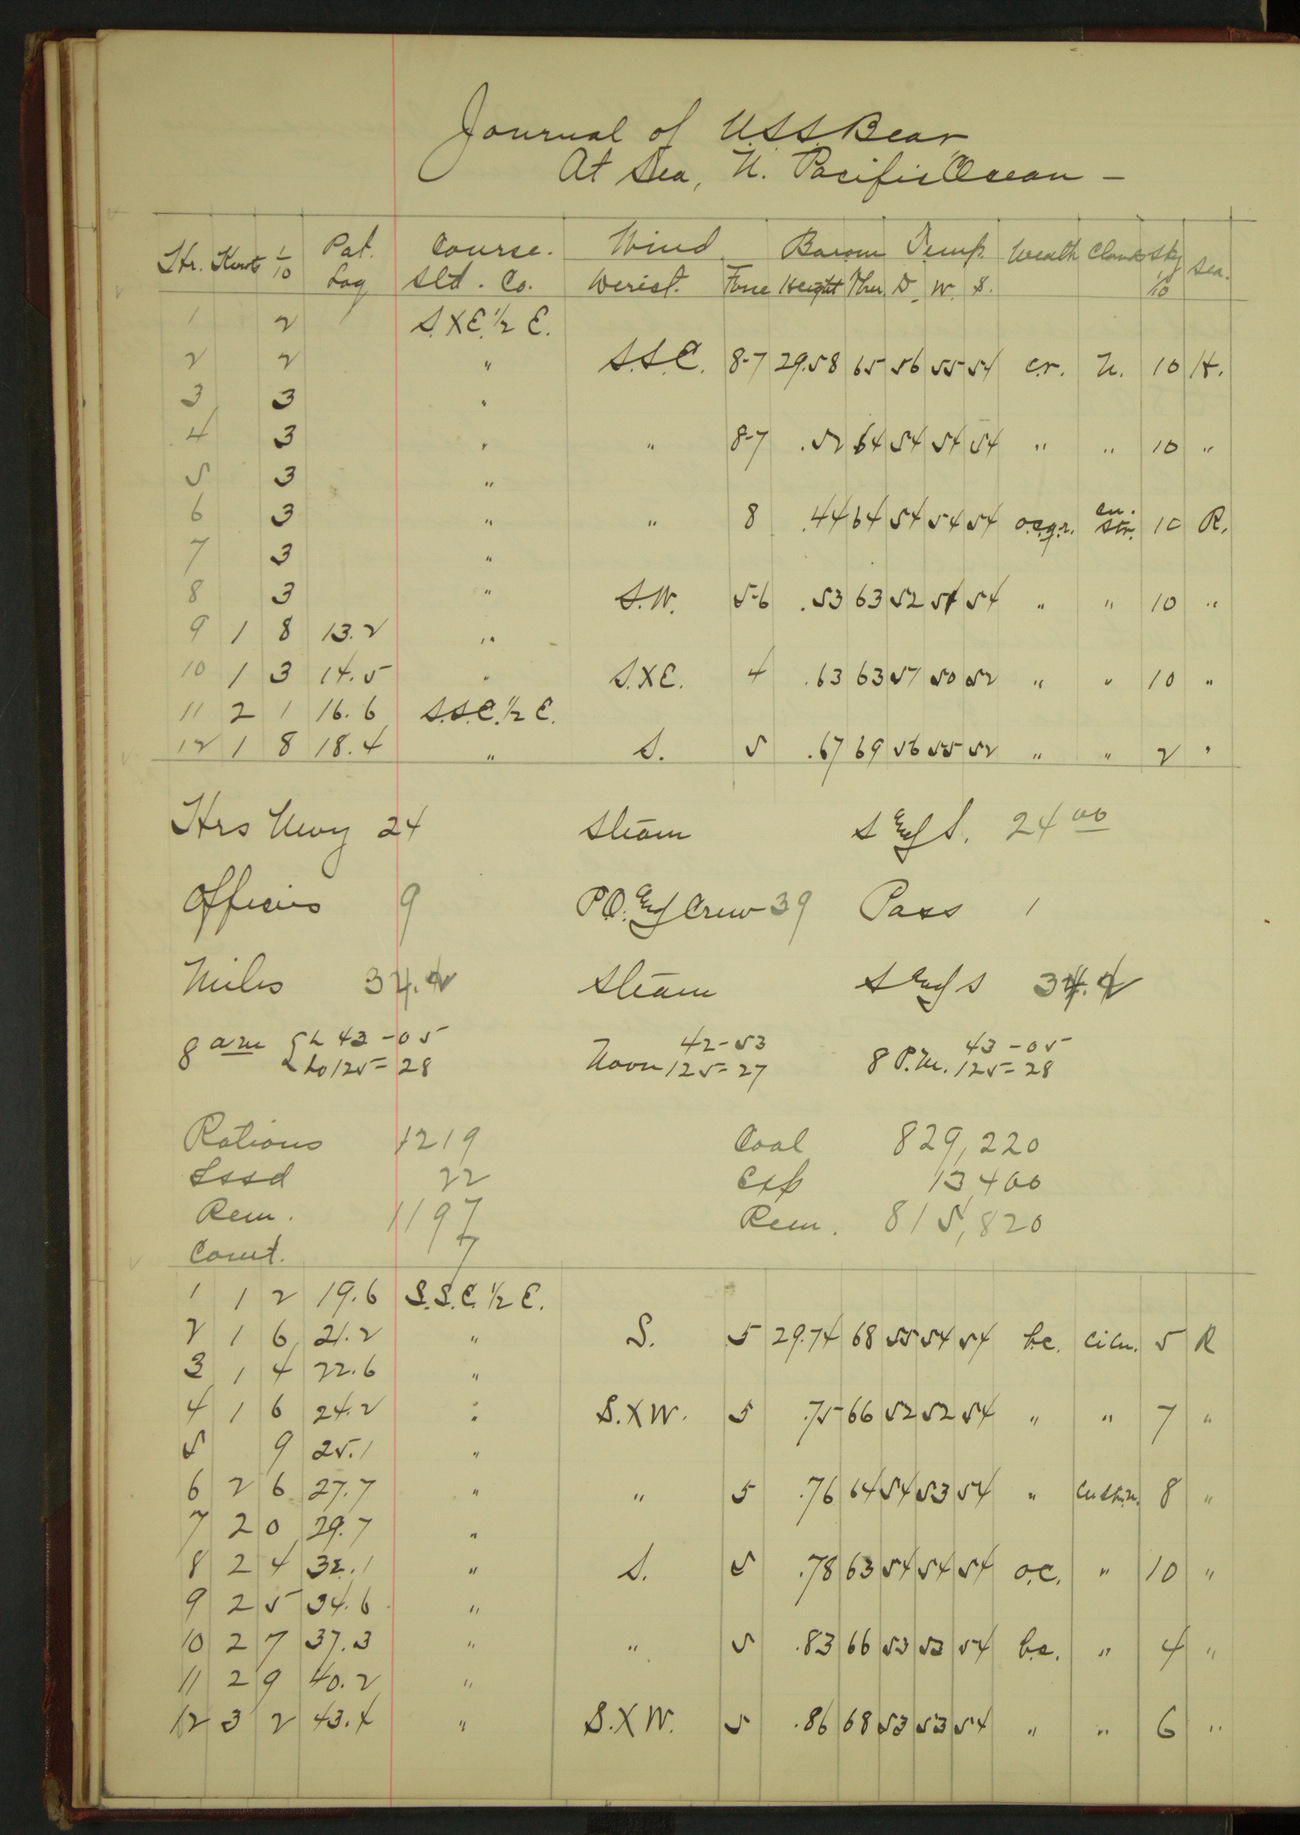 Journal of U.S.S. Bear
At Sea, N. Pacific Ocean —
Hr. Knots 1/10 Pat. Log Course. Std. Co. Wind Direct. Force Barom Height Ther. Temp. D. W. S. Weath Clouds Sky 10 Sea.
1 2 S.XE.½ E.
2 2 " S.S.E. 8-7 29.58 65 56 55 54 c.r. N. 10 H.
3 3 "
4 3 " " 8-7 .52 64 54 54 54 " " 10 "
5 3 "
6 3 " " 8 .44 64 54 54 54 o.c.q.r. cu. str. 10 R.
7 3 "
8 3 " S.W. 5-6 .53 63 52 51 54 " " 10 "
9 1 8 13.2 "
10 1 3 14.5 " S.XE. 4 .63 63 51 50 52 " " 10 "
11 2 1 16.6 S.S.E.½ E.
12 1 8 18.4 " S. 5 .67 69 56 55 52 " " 2 "
Hrs Nwy 24 Steam S and S. 24 00
Officers 9 P.O. and Crew 39 Pass 1
Miles 34.2 Steam S and S 34.2
8 am La 43-05 Lo 125=28 Noon 42-53 125=27 8 P.M. 43-05 125=28
Rations 1219 Coal 829,220
Issd 22 Exp 13,400
Rem. 1197 Rem. 815,820
Comt. 7
1 1 2 19.6 S.S.E.½ E.
2 1 6 21.2 " S. 5 29.74 68 55 54 54 bc. ci cu. 5 R
3 1 4 22.6 "
4 1 6 24.2 " S.XW. 5 .75 66 52 52 54 " " 7 "
5 9 25.1 "
6 2 6 27.7 " " 5 .76 64 54 53 54 " cu str.n. 8 "
7 2 0 29.7 "
8 2 4 32.1 " S. 5 .78 63 54 54 54 o.c. " 10 "
9 2 5 34.6 "
10 2 7 37.3 " " 5 .83 66 53 53 54 b.c. " 4 "
11 2 9 40.2 "
12 3 2 43.4 " S.XW. 5 .86 68 53 53 54 " " 6 "